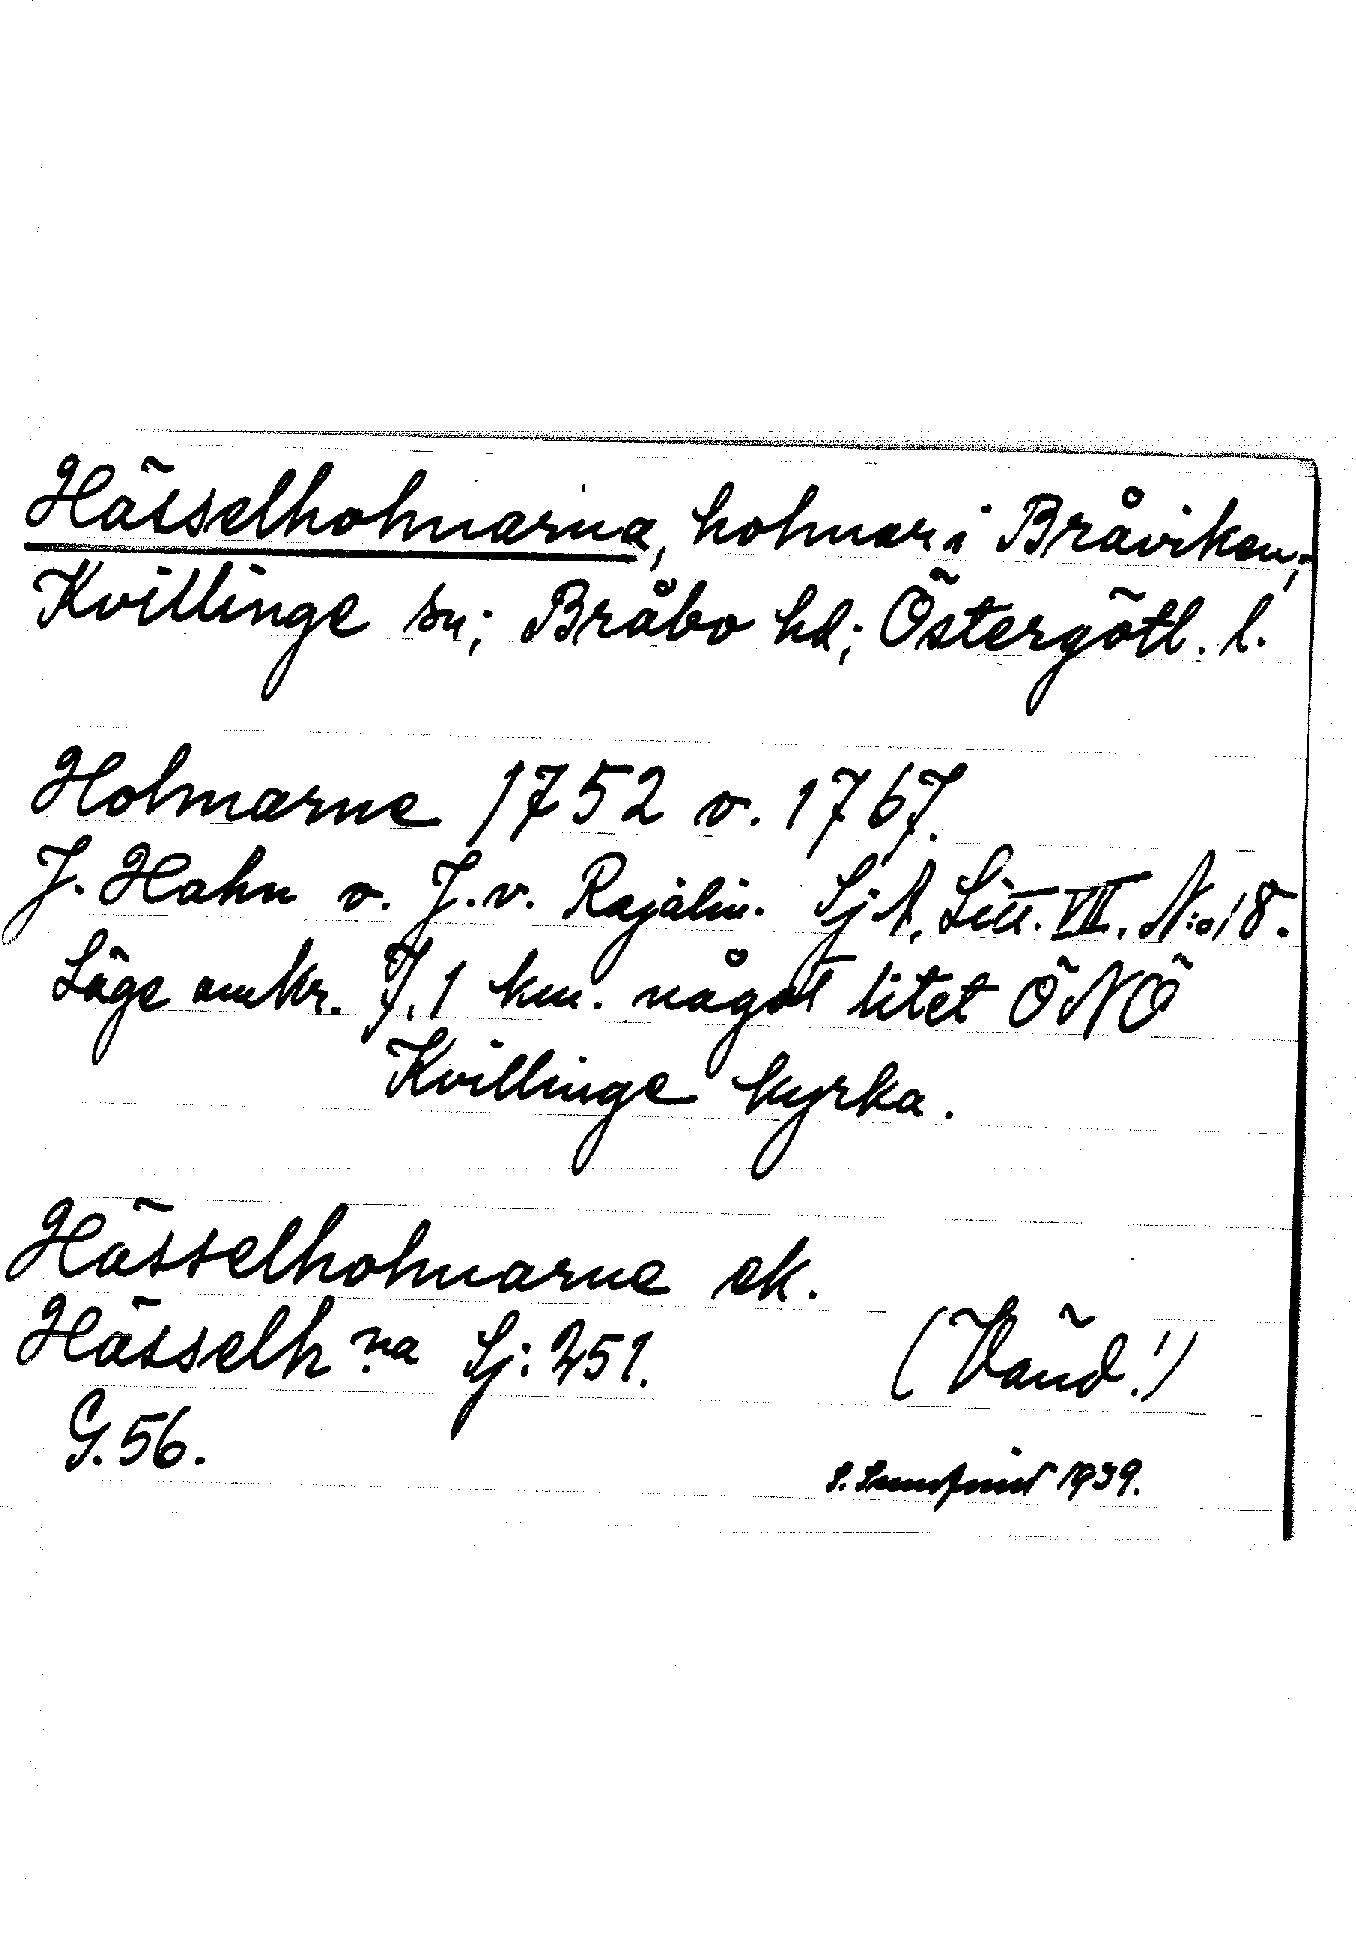 Hässelholmarna, holmar i Bråviken;
Kvillinge sn; Bråbo hd; Östergötl. l.
Holmarne 1752 o. 1767.
J. Hahn o. J. v. Rajalin. SjA, Litt. VII. N:o 18.
Läge omkr. 7.1 km. något litet ÖNÖ
Kvillinge kyrka.
Hässelholmarne ek.
Hässelh:na Sj: 251.
(Vänd!)
G. 56.
1939.